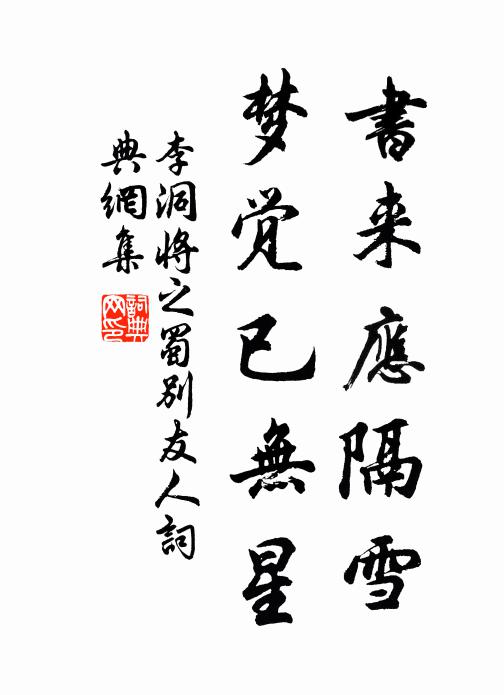 書来應隔雪
梦觉已無星
李洞將之蜀别友人詞
典網集
詞典网印